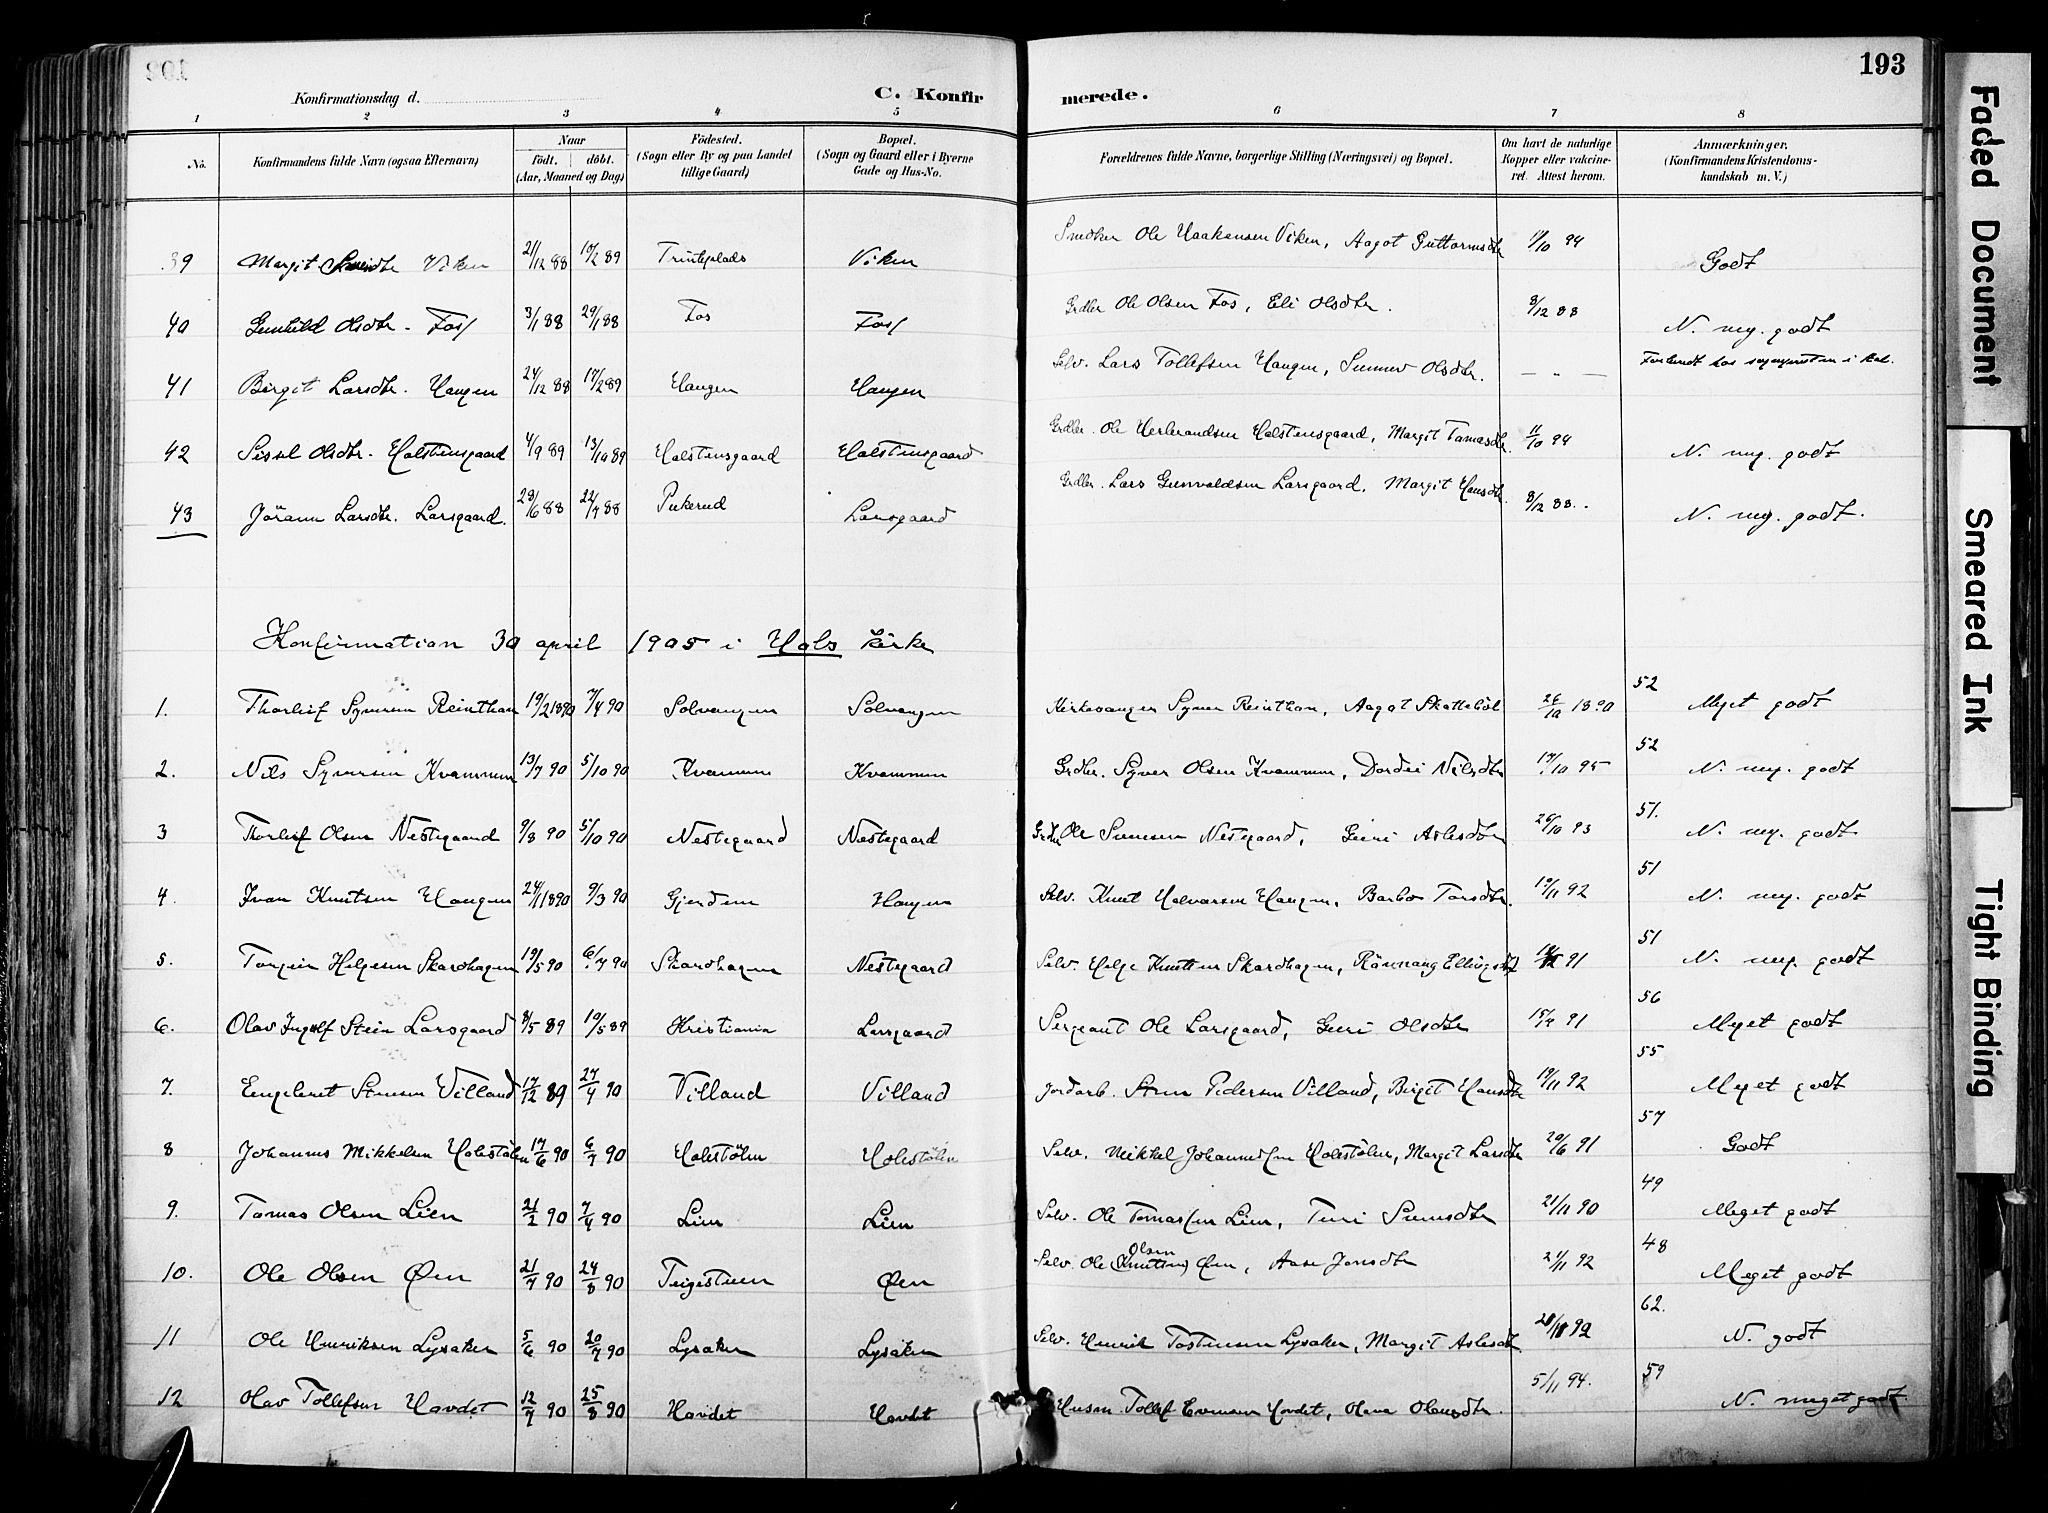 193
Konfirmationsdag d. C. Konfirmerede.
1 2 3 4 5 6 7 8
No. Konfirmandens fulde Navn (ogsaa Efternavn) Naar født. døbt. (Aar, Maaned og Dag) Födested. (Sogn eller By og paa Landet tillige Gaard) Bopæl. (Sogn og Gaard eller i Byerne Gade og Hus-No. Forældrenes fulde Navne, borgerlige Stilling (Næringsvei) og Bopæl. Om havt de naturlige Kopper eller vaccineret. Attest herom. Anmærkninger. (Konfirmandens Kristendomskundskab m. V.)
39 Margit Viken 21/12 88 10/2 89 Trinteplads Viken Snedker Ole Haakensen Viken, Aagot Guttormsdtr 11/10 94 Godt
40 Gunhild Olsdtr. Foss 3/1 88 29/1 88 Fos Foss Grdbr Ole Olsen Fos, Eli Olsdtr. 3/12 88 N. meg. godt
41 Birgit Larsdtr. Haugen 24/12 88 17/2 89 Haugen Haugen Selv. Lars Tollefsen Haugen, Sunnev Olsdtr. — " —
42 Sissel Olsdtr. Holstensgaard 4/9 89 13/10 89 Holstensgaard Holstensgaard Grdbr. Ole Herbrandsen Holstensgaard, Margit Tomasdtr 11/10 94 N. meg. godt
43 Jörann Larsdtr. Larsgaard. 28/6 88 22/7 88 Pukerud Larsgaard Grdbr. Lars Gunvaldsen Larsgaard, Margit Hansdtr. 3/12 88. N. meg. godt.
Konfirmation 30 april 1905 i Hols kirke
1. Thorleif Syversen Reinthon 19/2 1890 7/4 90 Solvangen Solvangen Kirkesanger Syver Reinthon, Aagot Skattebøl 26/10 1890 52 Meget godt
2. Nils Syversen Kvammen 13/7 90 5/10 90 Kvammen Kvammen Grdbr. Syver Olsen Kvammen, Dordei Nilsdtr 17/10 95 52 N. meg. godt
3 Thorleif Olsen Nestegaard 9/8 90 5/10 90 Nestegaard Nestegaard Grdbr Ole Svensen Nestgaard, Guri Aslesdtr 26/10 93 51. N. meg. godt
4. Ivar Knutsen Haugen 24/1 1890 9/3 90 Gjerden Haugen Selv. Knut Halvorsen Haugen, Barbo Torsdtr. 10/11 92 51 N. meg. godt
5. Torgeir Helgesen Skardhagen 19/5 90 6/7 90 Skardhagen Nestegaard Selv. Helge Knutsen Skardhagen, Rönnaug Ellingsdt 91 51 N. meg. godt
6. Olav Ingolf Stein Larsgaard 3/5 89 19/5 89 Kristiania Larsgaard Sergeant Ole Larsgaard, Guri Olsdtr 15/9 91 56 Meget godt
7. Engebret Stensen Villand 17/12 89 27/4 90 Villand Villand Jordarb. Sten Pedersen Villand, Birgit Hansdtr 19/11 92 55 Meget godt
8 Johannes Mikkelsen Holestölen 17/6 90 6/7 90 Holestölen Holestölen Selv. Mikkel Johannessen Holestölen, Margit Larsdtr 20/6 91 57 Godt
9. Tomas Olsen Lien 21/2 90 7/4 90 Lien Lien Selv. Ole Tomassen Lien, Turi Svensdtr 21/11 90 49 Meget godt
10. Ole Olsen Øen 21/7 90 24/8 90 Teigesteen Øen Selv. Ole (Knutsen) Olsen Øen, Aase Jonsdtr 21/11 92 48 Meget godt
11 Ole Henriksen Lysaker 5/6 90 20/7 90 Lysaker Lysaker Selv. Henrik Tostensen Lysaker, Margit Aslesdt. 92 62. N. godt
12 Olav Tollefsen Hovdet 12/7 90 25/8 90 Hovdet Hovdet Husm. Tollef Evensen Hovdet, Olava Olavsdtr. 5/11 94. 59 N. meget godt.
Faded Document
Smeared Ink
Tight Binding